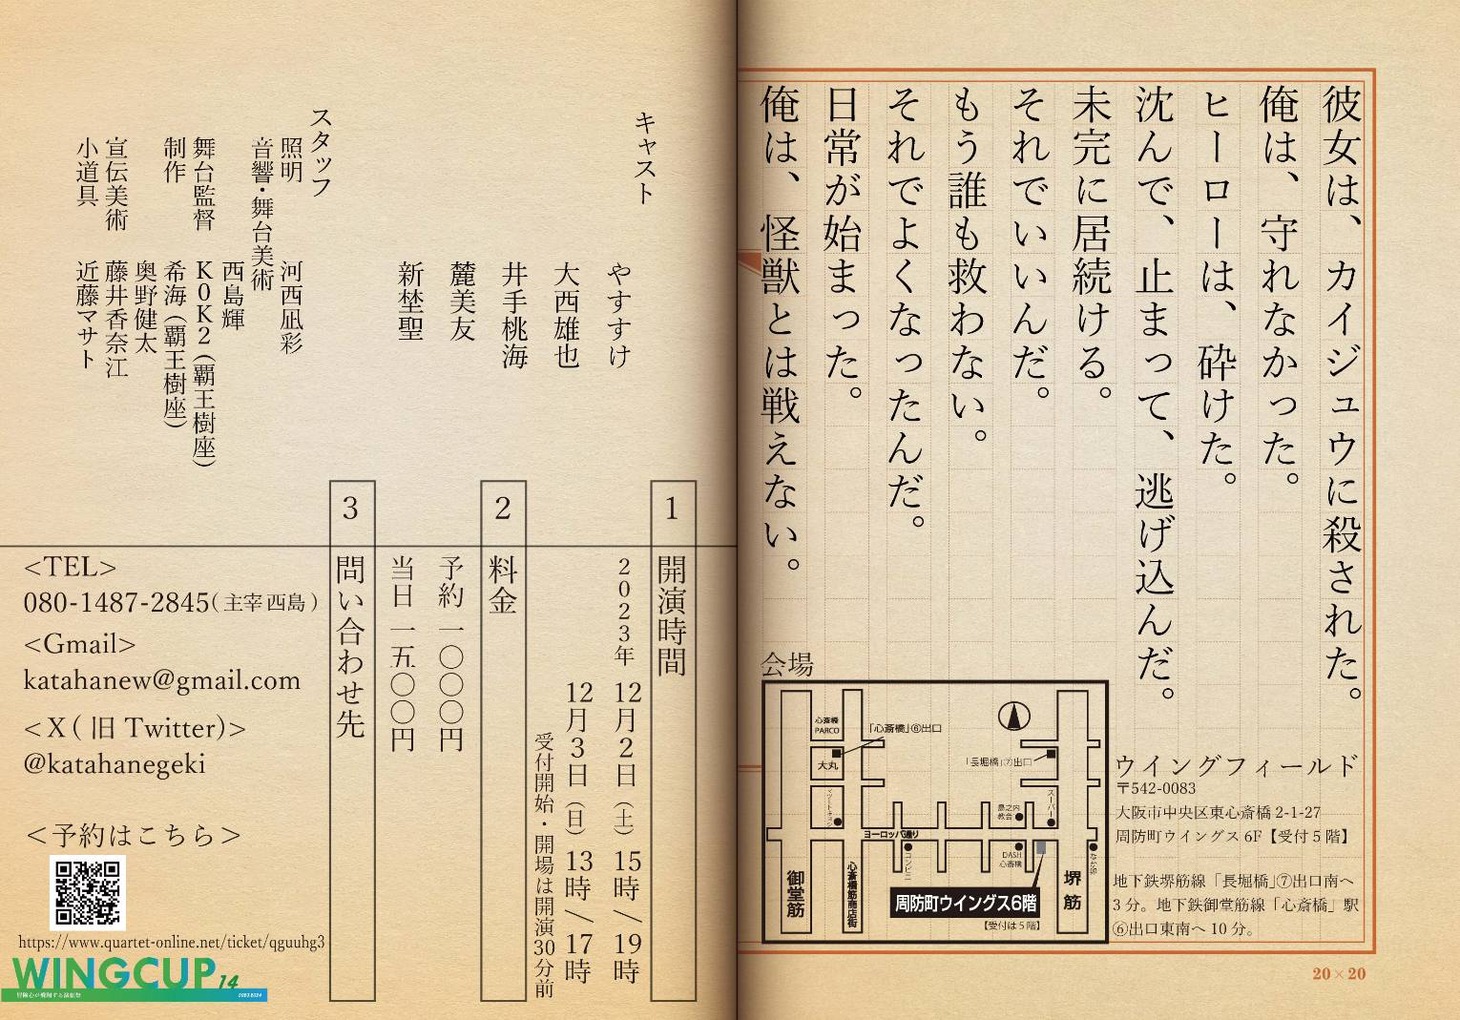 彼女は、カイジュウに殺された。
俺は、守れなかった。
ヒーローは、砕けた。
沈んで、止まって、逃げ込んだ。
未完に居続ける。
それでいいんだ。
もう誰も救わない。
それでよくなったんだ。
日常が始まった。
俺は、怪獣とは戦えない。
会場
心斎橋
PARCO
「心斎橋」⑥出口
大丸
「長堀橋」⑦出口
スーパー
島之内
教会
ヨーロッパ通り
コンビニ
DASH
心斎橋
御堂筋
心斎橋筋商店街
堺筋
周防町ウイングス6階
【受付は5階】
ウイングフィールド
〒542-0083
大阪市中央区東心斎橋 2-1-27
周防町ウイングス 6F【受付 5 階】
地下鉄堺筋線「長堀橋」⑦出口南へ
3 分。地下鉄御堂筋線「心斎橋」駅
⑥出口東南へ 10 分。
20×20
キャスト
やすすけ
大西雄也
井手桃海
麓美友
新埜聖
スタッフ
照明 河西凪彩
音響・舞台美術
西島輝
舞台監督 K0K2（覇王樹座）
制作 希海（覇王樹座）
奥野健太
宣伝美術 藤井香奈江
小道具 近藤マサト
1 開演時間
2023年 12月2日（土）15時／19時
12月3日（日）13時／17時
受付開始・開場は開演30分前
2 料金
予約 一〇〇〇円
当日 一五〇〇円
3 問い合わせ先
<TEL>
080-1487-2845(主宰 西島)
<Gmail>
katahanew@gmail.com
<X(旧 Twitter)>
@katahanegeki
<予約はこちら>
https://www.quartet-online.net/ticket/qguuhg3
WINGCUP14